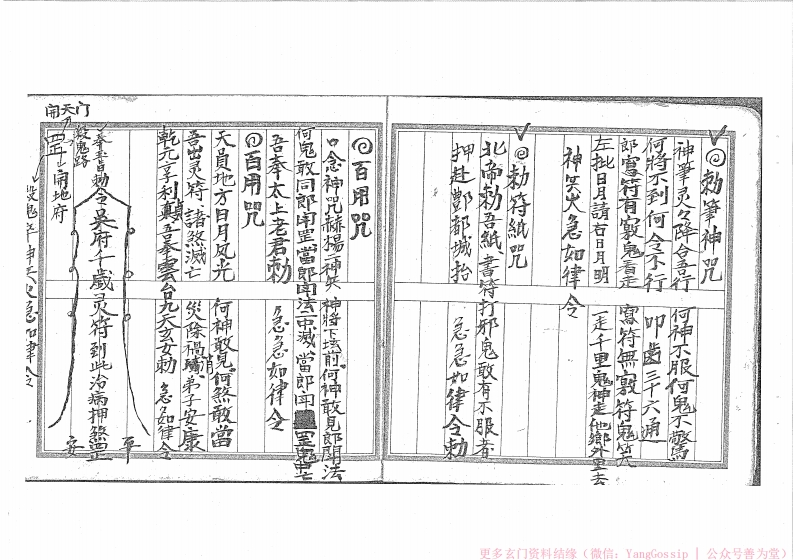 ◎勅筆神咒
神筆灵灵降合吾行 何神不服何鬼不驚
何將不到何令不行 叩齒三十六通
郎寫符有敹鬼看走 寫符無敹符鬼笑
左批日月請右日月明 一走千里鬼神走他鄉外里去
神笑火急如律令
◎勅符紙咒
北帝勅吾紙書符打邪鬼敢有不服者
押赴酆都城抬 急急如律令勅
◎百用咒
念神咒赫揚二神笑 神將下坛前何神敢見郎聞法
何鬼敢同郎開罡當郎開法一中滅 當郎開罡鬼
吾奉太上老君勅 急急如律令
◎百用咒
天員地方日月风光 何神敢見何煞敢當
吾出灵符諸煞滅亡 災除禍消弟子安康
乾元亨利貞吾奉雲台九天玄女勅 急急如律令
開天门
殺鬼路
奉吾旨勅令吴府千歲灵符到此治病押煞罡
平
安
罡
開地府
急如律令
更多玄门资料结缘（微信：YangGossip | 公众号善为堂）